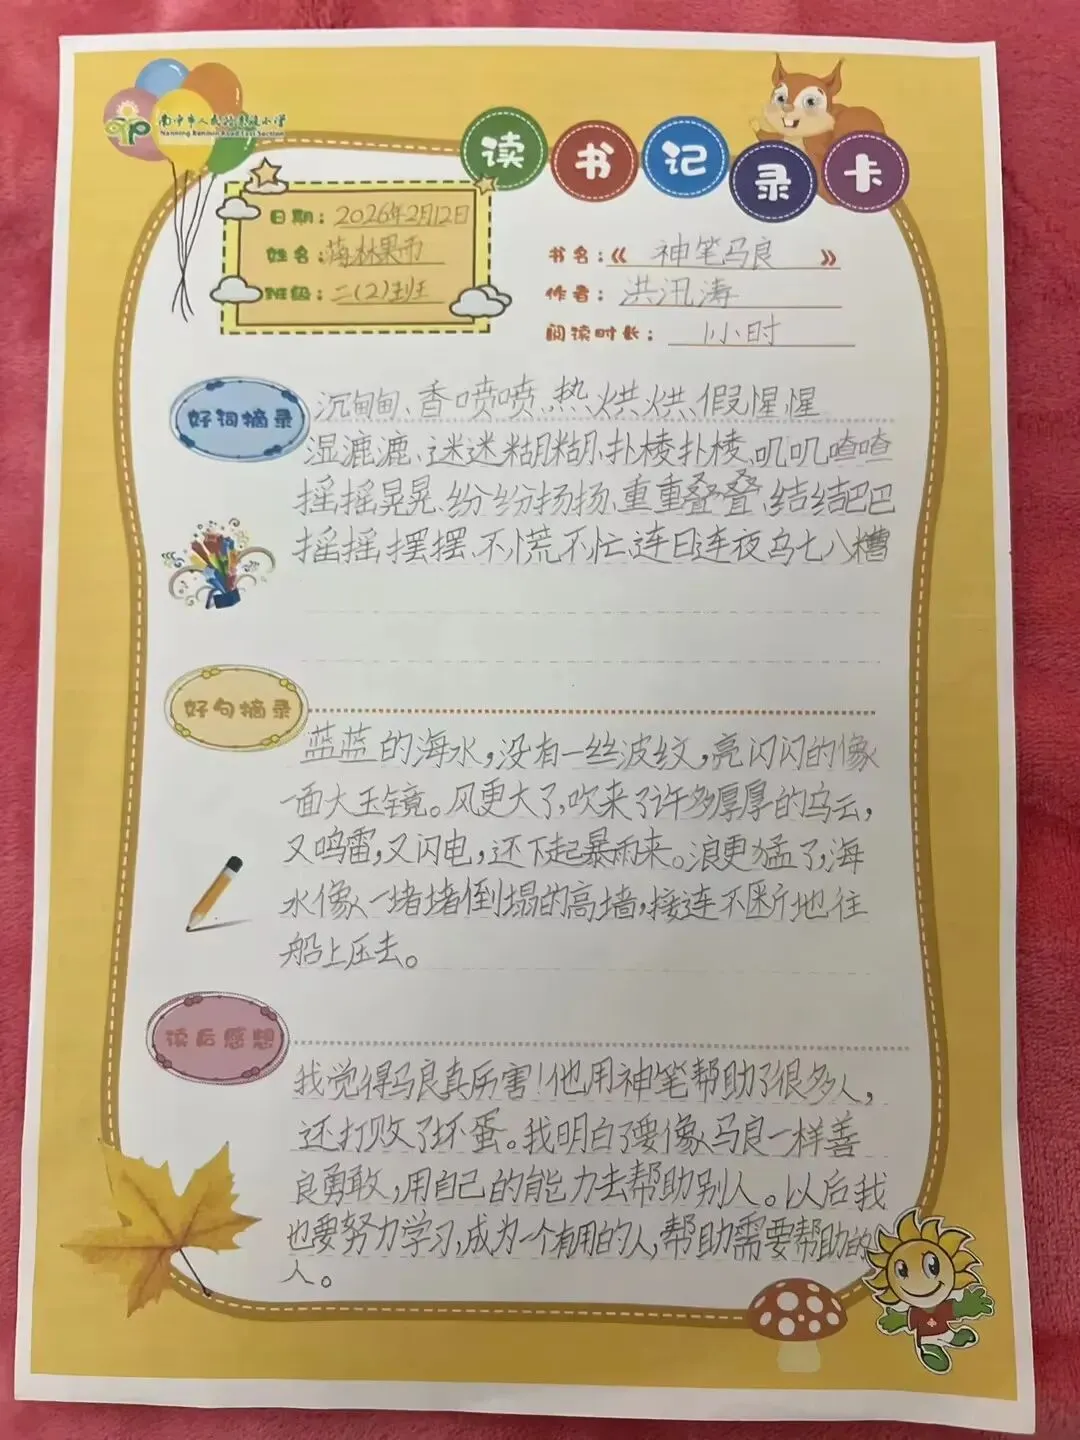 南宁市人民路东段小学
Nanning Renmin Road East Section
读书记录卡
日期：2026年2月12日
姓名：蒋林果雨
班级：二（2）班
书名：《神笔马良》
作者：洪汛涛
阅读时长：1小时
好词摘录
沉甸甸、香喷喷、热烘烘、假惺惺
湿漉漉、迷迷糊糊、扑棱扑棱、叽叽喳喳
摇摇晃晃、纷纷扬扬、重重叠叠、结结巴巴
摇摇摆摆、不慌不忙、连日连夜乌七八糟
好句摘录
蓝蓝的海水，没有一丝波纹，亮闪闪的像
一面大玉镜。风更大了，吹来了许多厚厚的乌云，
又鸣雷，又闪电，还下起暴雨来。浪更猛了，海
水像一堵堵倒塌的高墙，接连不断地往
船上压去。
读后感想
我觉得马良真厉害！他用神笔帮助了很多人，
还打败了坏蛋。我明白了要像马良一样善
良勇敢，用自己的能力去帮助别人。以后我
也要努力学习，成为一个有用的人，帮助需要帮助的
人。